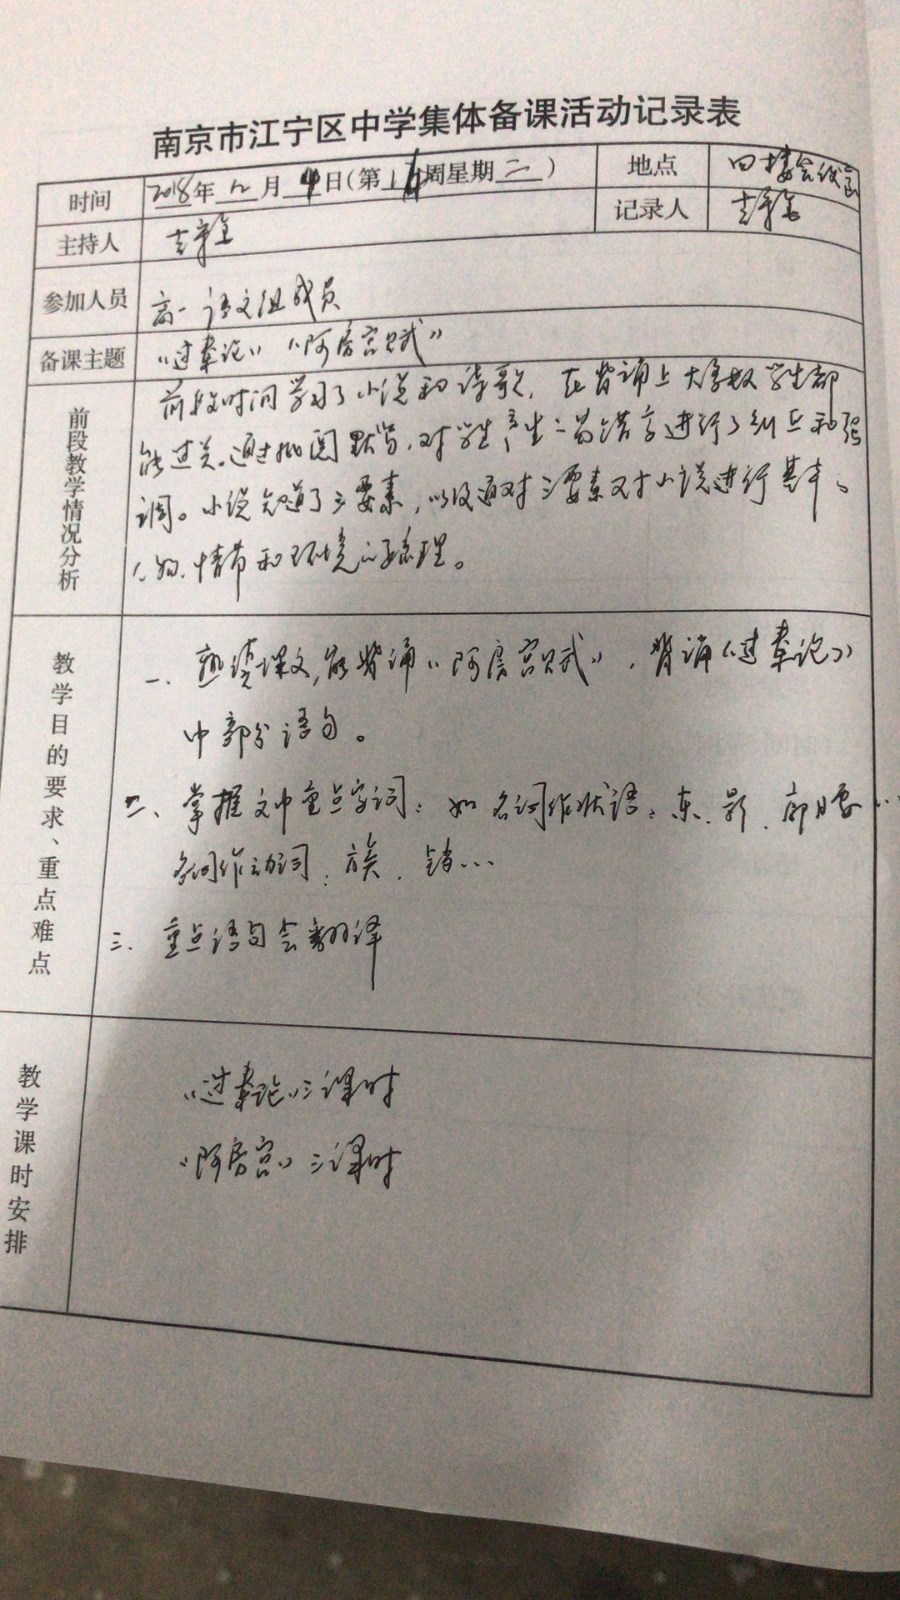 南京市江宁区中学集体备课活动记录表
时间 2018年12月4日(第1周星期二) 地点 四楼会议室
主持人 记录人
参加人员 高一语文组成员
备课主题 《过秦论》《阿房宫赋》
前段教学情况分析
前段时间学习了小说和诗歌,在背诵上大多数学生都
能过关。通过批阅默写,对学生产生的错字进行了纠正和强
调。小说知道了三要素,以及通过三要素对小说进行基本
人物、情节和环境的梳理。
教学目的要求、重点难点
一、熟读课文,能背诵《阿房宫赋》,背诵《过秦论》
中部分语句。
二、掌握文中重点字词:如名词作状语:东、影、廊腰…
名词作动词:族、锱…
三、重点语句会翻译
教学课时安排
《过秦论》三课时
《阿房宫》三课时